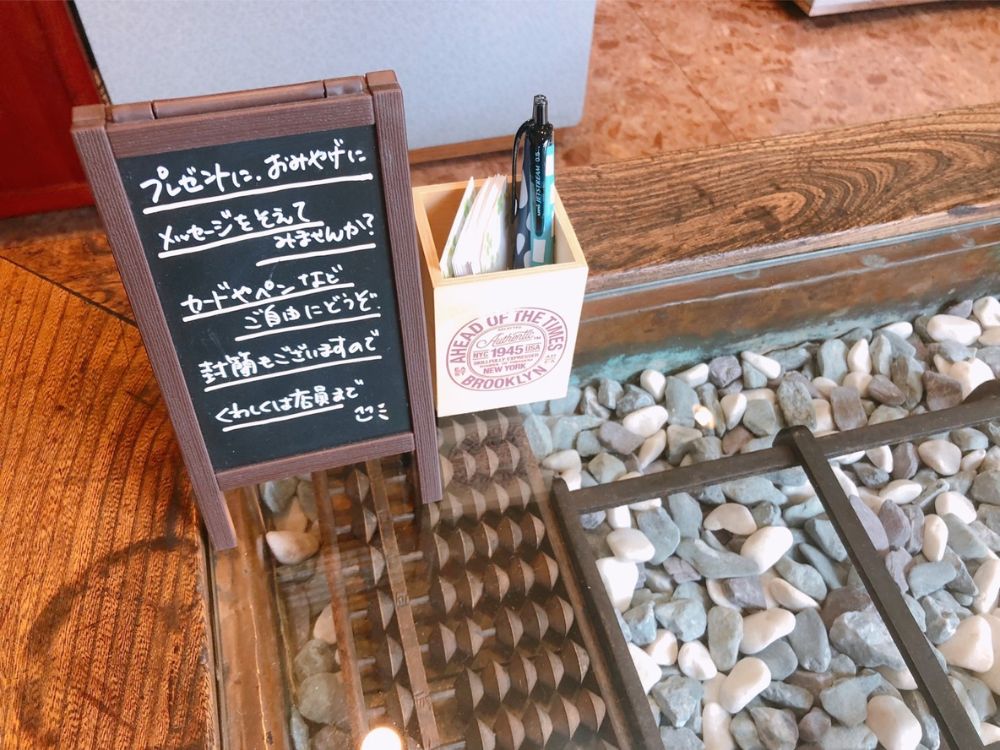 プレゼントに、おみやげに
メッセージをそえて
みませんか?
カードやペンなど
ご自由にどうぞ.
封筒もございますので
くわしくは店員まで
uni JETSTREAM 0.5
AHEAD OF THE TIMES
Authentic
NYC 1945 USA
NEW YORK
BROOKLYN